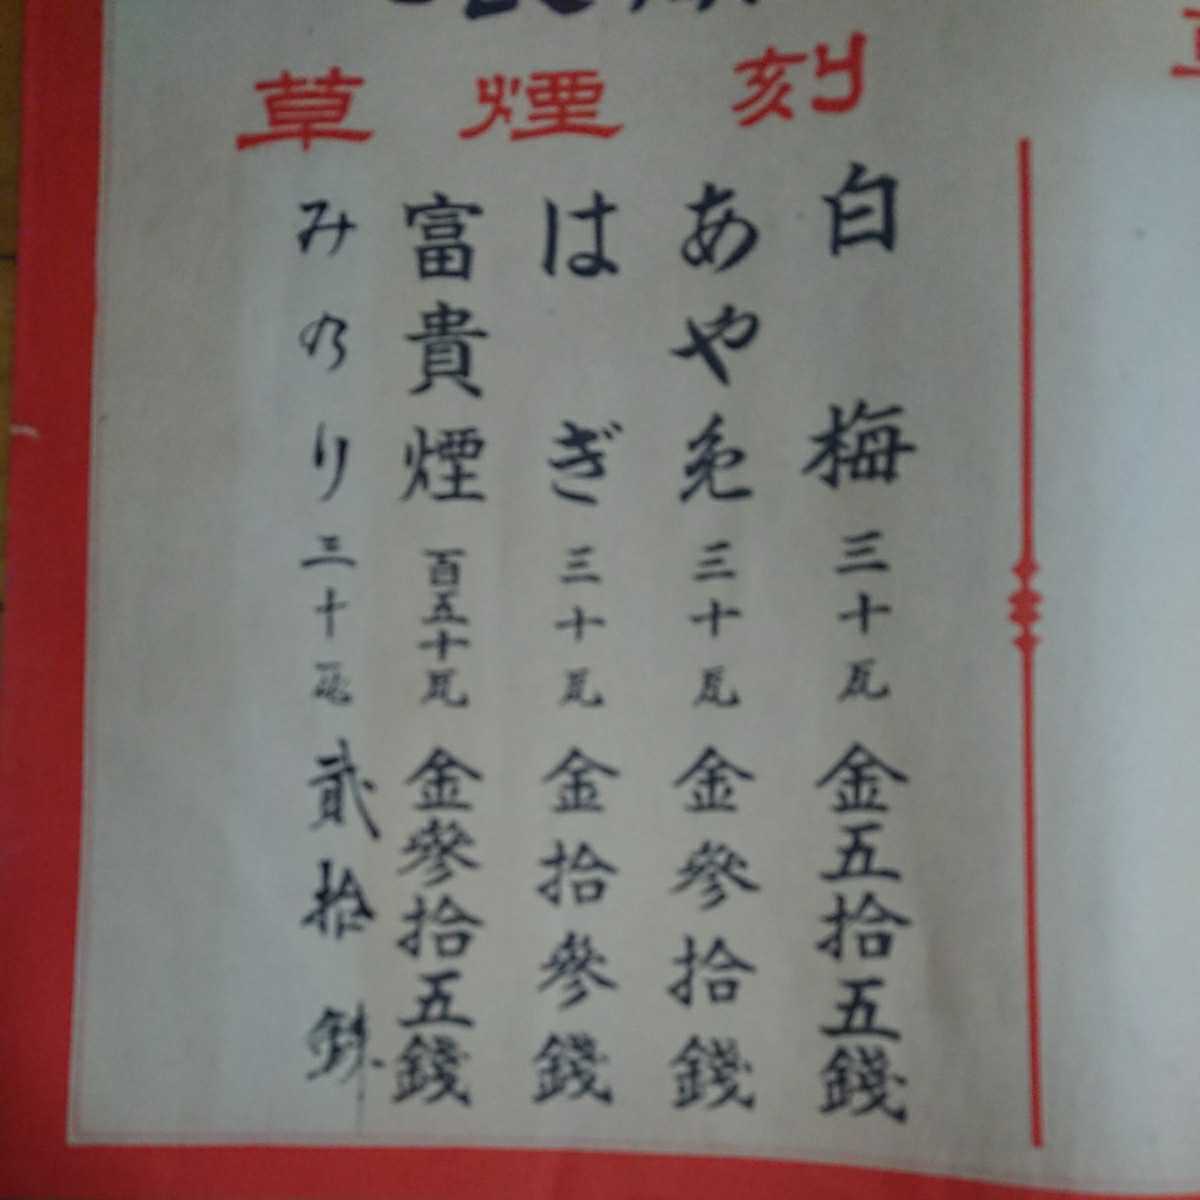 刻煙草
白梅三十瓦金五拾五錢
あやめ三十瓦金參拾錢
はぎ三十瓦金拾參錢
富貴煙百五十瓦金參拾五錢
みのり三十瓦貳拾銭